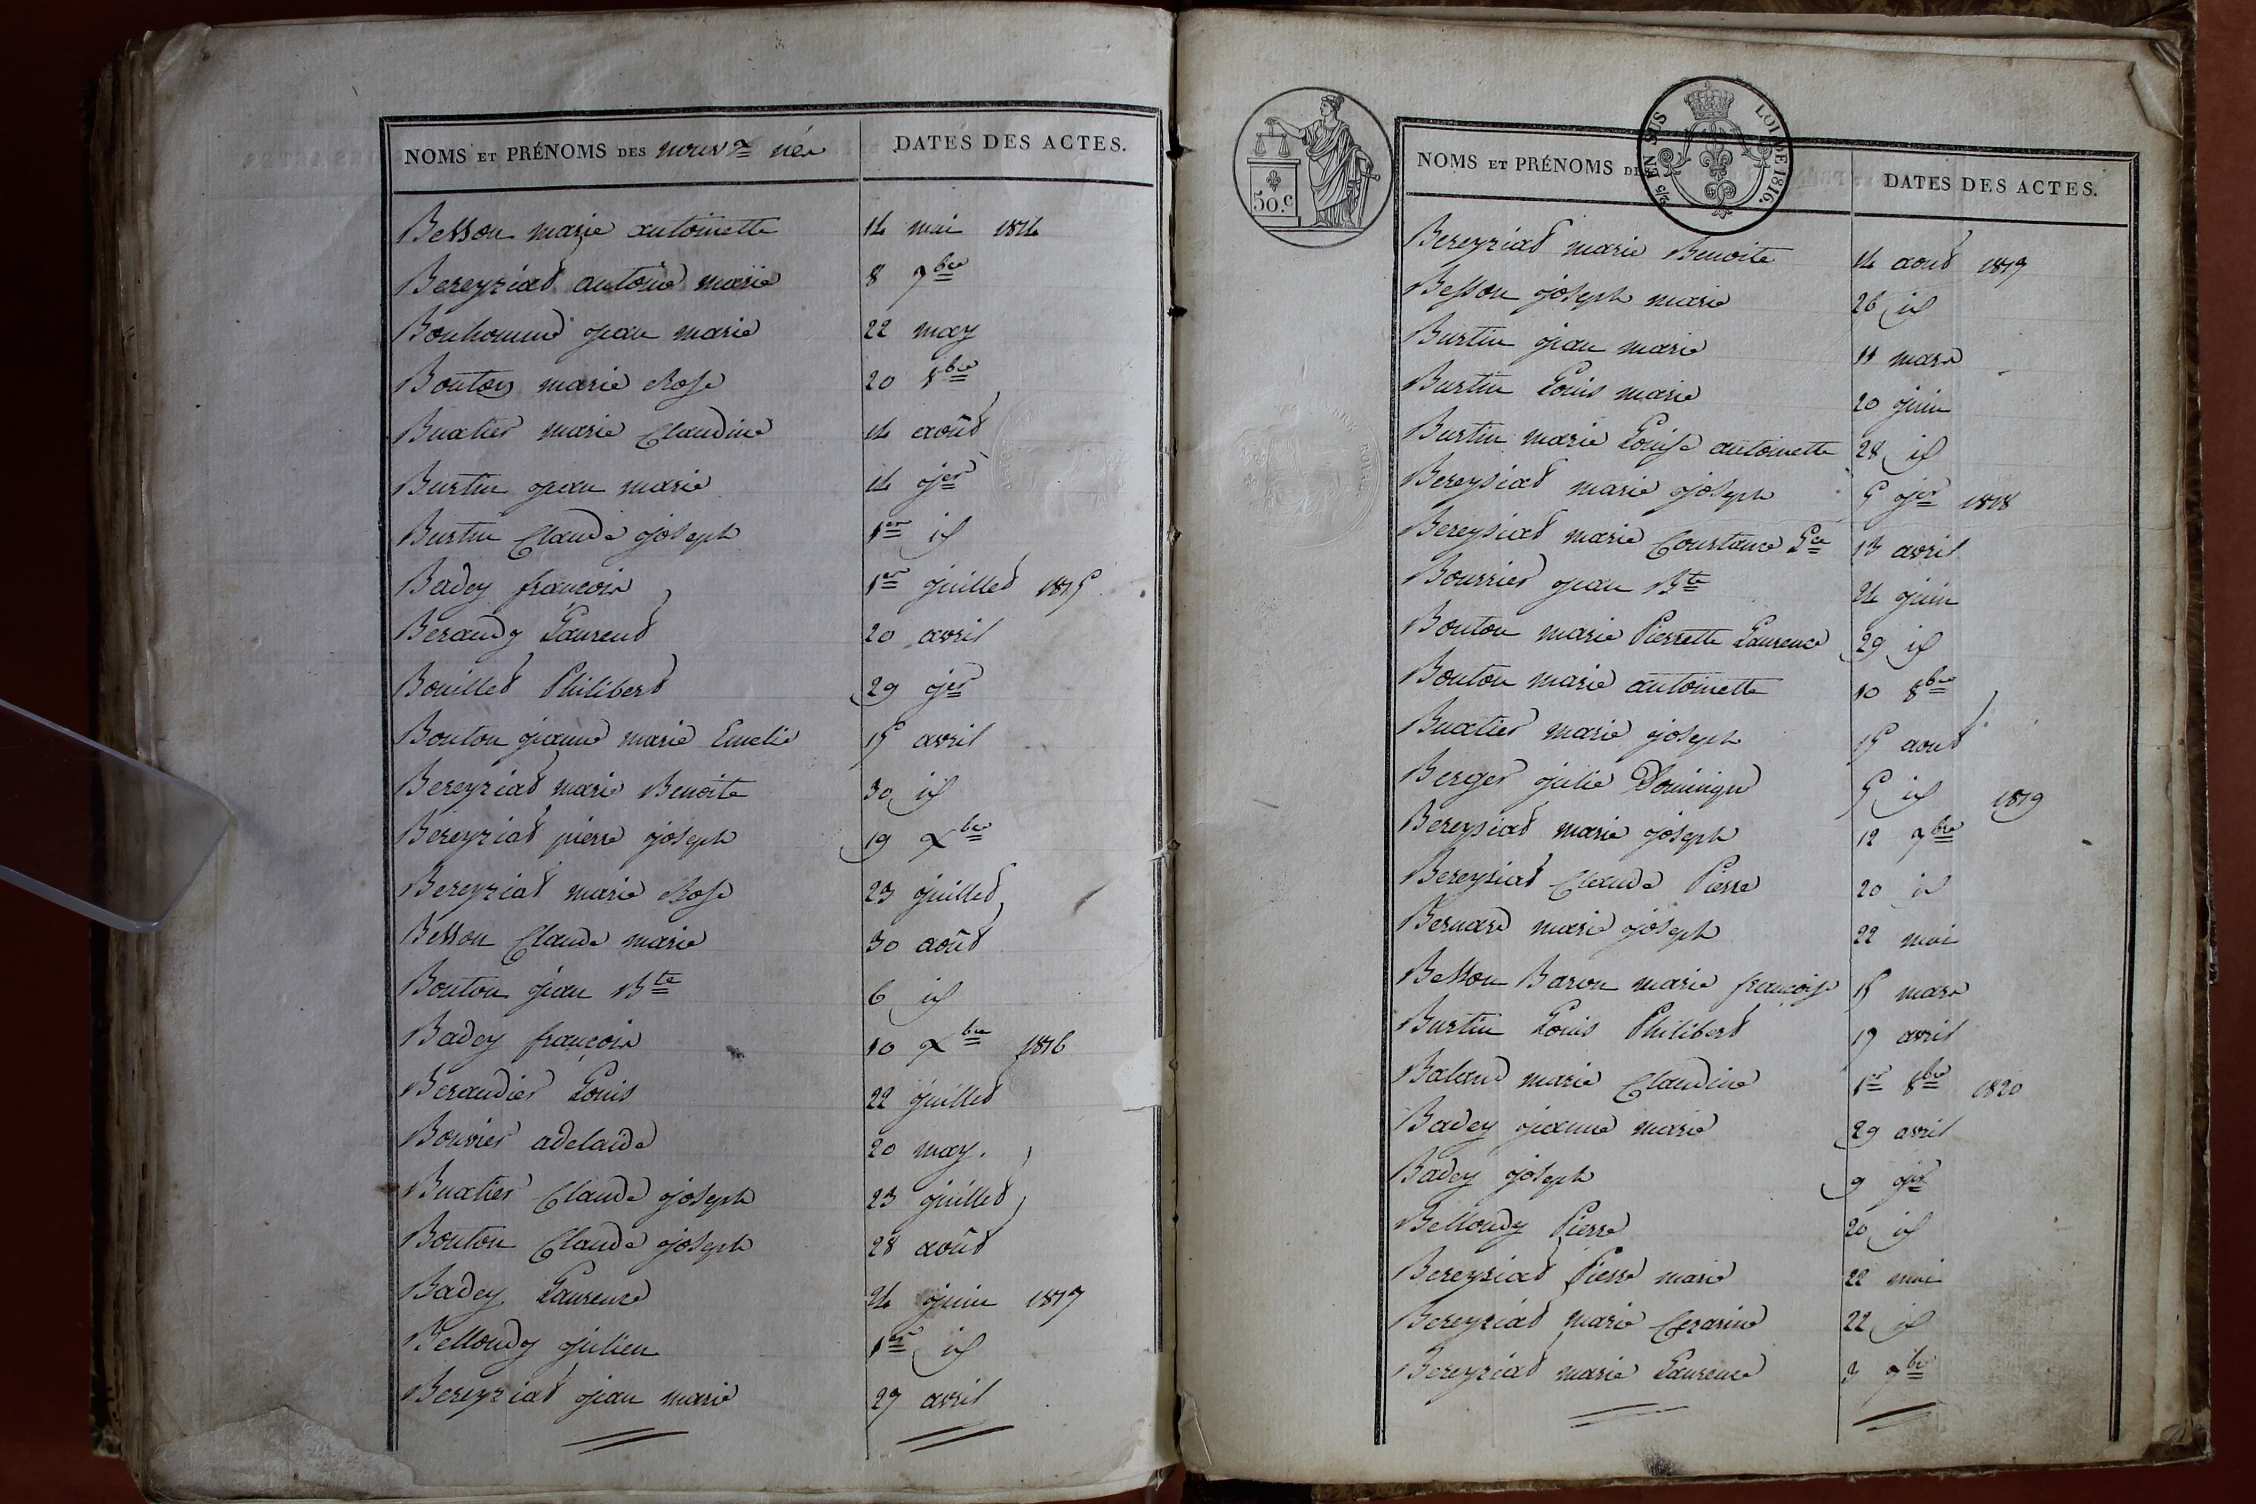 NOMS ET PRÉNOMS DES nouvx nés DATES DES ACTES.
Besson marie antoinette 14 mai 1814
Bereyziat antoine marie 8 7bre
Bonhomme jean marie 22 may
Bouton marie Rose 20 8bre
Buatier marie Claudine 14 août
Burtin jean marie 14 jer
Burtin Claude joseph 1er id
Badey françois 1er juillet 1815
Beraudy Laurent 20 avril
Bouillet Philibert 29 jer
Bouton jeanne marie Emelie 15 avril
Bereyziat marie Benoite 30 id
Bereyziat pierre joseph 19 Xbre
Bereyziat marie Rose 23 juillet
Besson Claude marie 30 août
Bouton jean Bte 6 id
Badey françois 10 Xbre 1816
Beraudier Louis 22 juillet
Bouvier adelaide 20 may.
Buatier Claude joseph 23 juillet
Bouton Claude joseph 28 août
Badey Laurence 24 juin 1817
Belloudy julien 1er id
Bereyziat jean marie 27 avril
50.c
EN SUS LOI DE 1816.
NOMS ET PRÉNOMS DES DATES DES ACTES.
Bereyziat marie Benoite 14 aout 1817
Besson joseph marie 26 id
Burtin jean marie 11 mars
Burtin Louis marie 20 juin
Burtin marie Louise antoinette 28 id
Bereysiat marie joseph 5 jer 1818
Bereysiat marie Constance Lce 13 avril
Bourrier jean Bte 24 juin
Bouton marie Pierrette Laurence 29 id
Bouton marie antoinette 10 8bre
Buatier marie joseph 15 aout
Berger julie Dominique 5 id 1819
Bereysiat marie joseph 12 7bre
Bereysiat Claude Pierre 20 id
Bernard marie joseph 22 mai
Besson Baron marie françoise 15 mars
Burtin Louis Philibert 17 avril
Baland marie Claudine 1er 8bre 1820
Badey jeanne marie 29 avril
Badey joseph 9 jer
Belloudy Pierre 20 id
Bereyziat Pierre marie 22 mai
Bereyziat marie Cezarine 22 id
Bereyziat marie Laurence 3 7bre